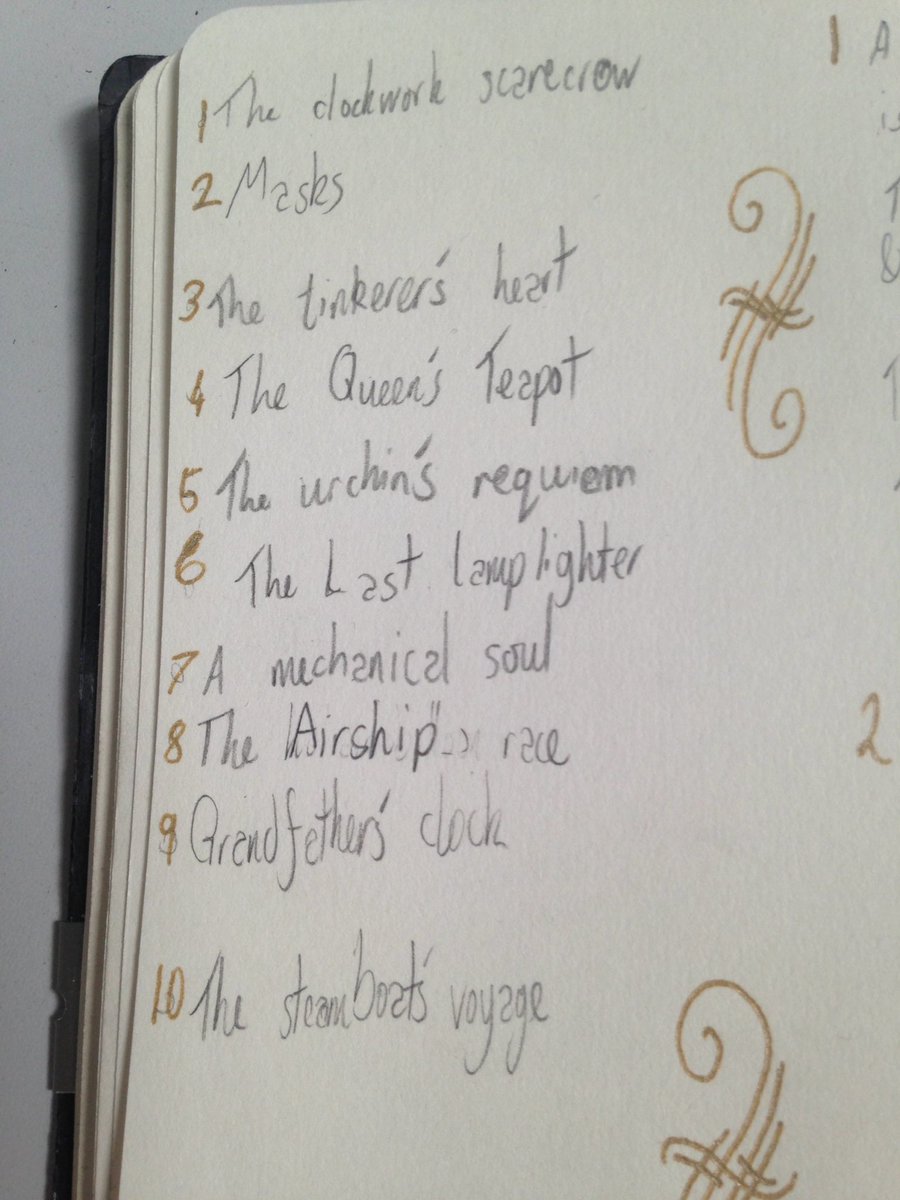 1 The clockwork scarecrow
2 Masks
3 The tinkerer's heart
4 The Queen's Teapot
5 The urchin's requiem
6 The Last lamplighter
7 A mechanical soul
8 The "Airship" race
9 Grandfather's clock
10 The steamboat's voyage
1 A
is
T
&
T
2